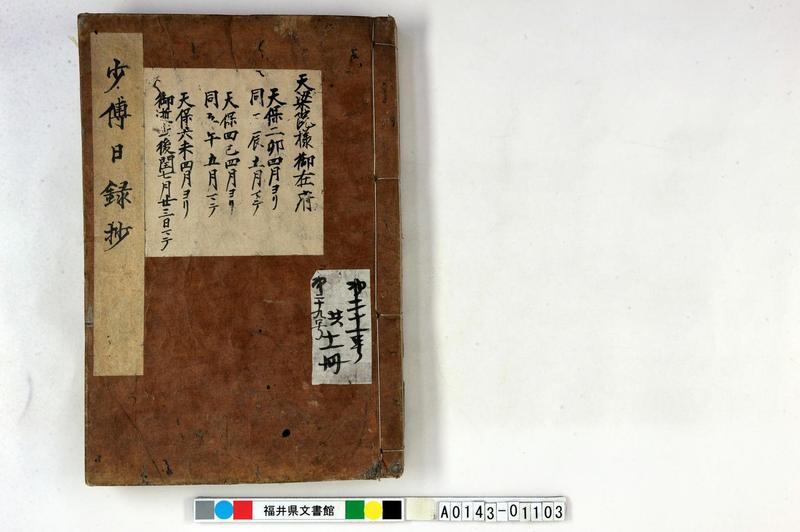 少傅日録抄
天梁院様御在府
天保二卯四月ヨリ
同 辰 月マテ
天保四巳四月ヨリ
同五午五月マテ
天保六未四月ヨリ
御逝去後閏七月廿三日マテ
共十一冊
第二十九号
福井県文書館
A0143-01103